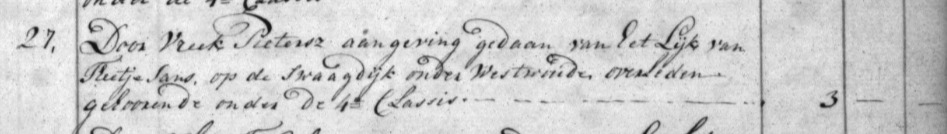 onder de 4e Classis
27. Door Vreek Pietersz aangeving gedaan van het Lijk van
Trietje Jans. op de Swaagdijk onder Westwoude overleden
gehoorende onder de 4e Classis 3